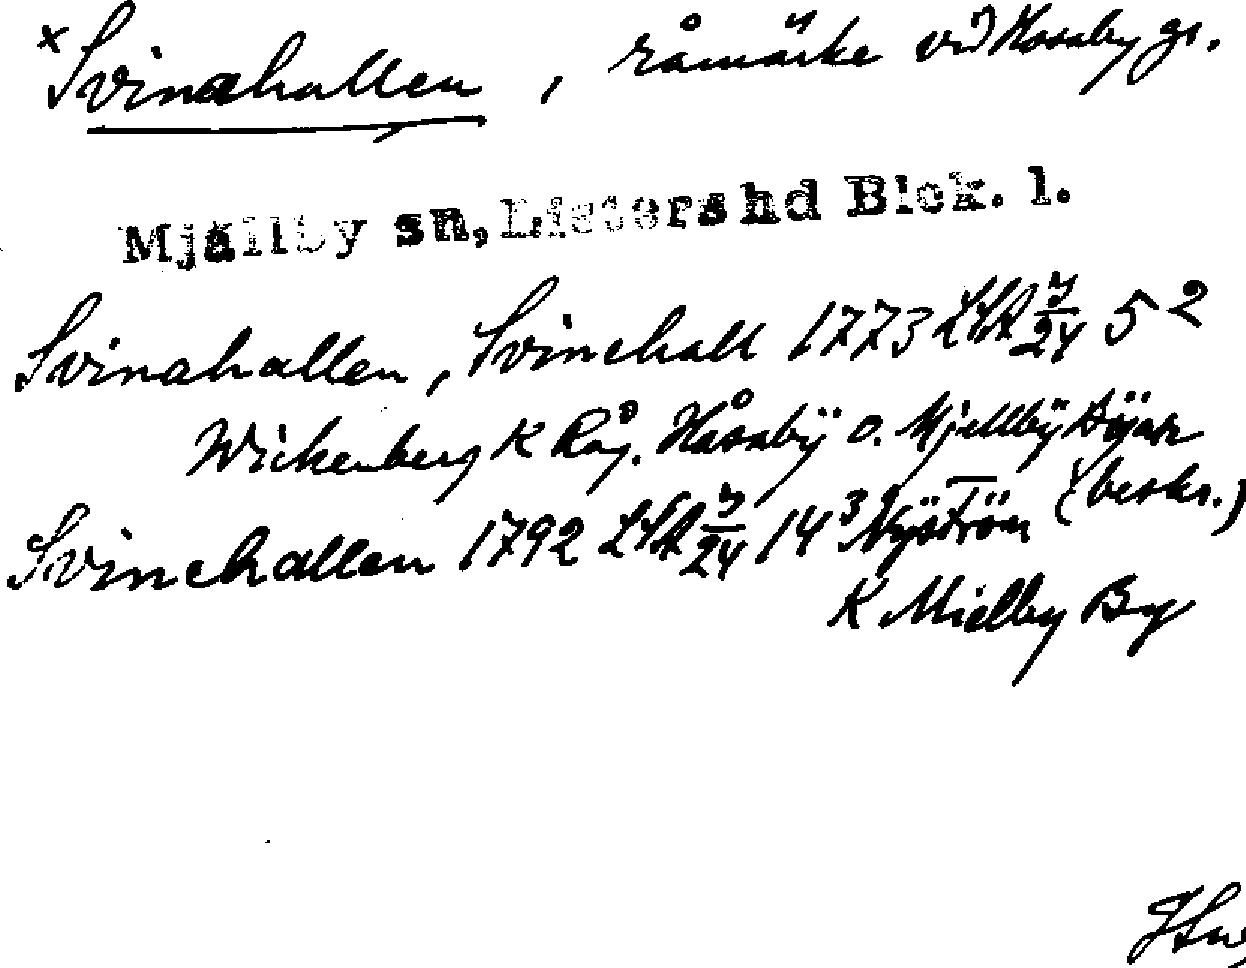 x Svinahallen, råmärke vid Hosaby gr.
Mjällby sn, Listers hd Blek. l.
Svinahallen, Svinehall 1773 LSA 7/24 5 2
Wickenberg K Råg. Håsabÿ o. Mjellbÿ Bÿar
Svinehallen 1792 LSA 7/24 14 3 Nÿström (beskr.)
K Mielby By